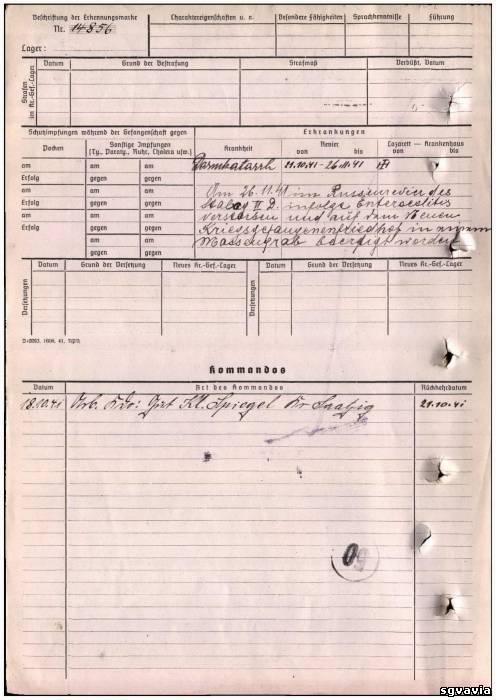 Beschriftung der Erkennungsmarke
Nr. 14856
Lager:
Charaktereigenschaften u. a.
Besondere Fähigkeiten
Sprachkenntnisse
Führung
Strafen im Kr.-Gef.-Lager
Datum
Grund der Bestrafung
Strafmaß
Verbüßt, Datum
Schutzimpfungen während der Gefangenschaft gegen
Erkrankungen
Pocken
Sonstige Impfungen
(Ty., Paraty., Ruhr, Cholera usw.)
Krankheit
Revier
von bis
Lazarett — Krankenhaus
von bis
am am am
Darmkatarrh 21.10.41 - 26.11.41
Erfolg gegen gegen
am am am
Am 26.11.41 im Russenrevier des
Erfolg gegen gegen
Stalag II D. infolge Enterocolitis
am am am
verstorben und auf dem Neuen
Erfolg gegen gegen
Kriegsgefangenenfriedhof in einem
am am
Massengrab beerdigt worden
gegen gegen
Versetzungen
Datum
Grund der Versetzung
Neues Kr.-Gef.-Lager
Versetzungen
Datum
Grund der Versetzung
Neues Kr.-Gef.-Lager
Kommandos
Datum
Art des Kommandos
Rückkehrdatum
18.10.41 Arb. Kdo: Gut Kl. Spiegel Kr Saatzig 21.10.41
50
sgvavia